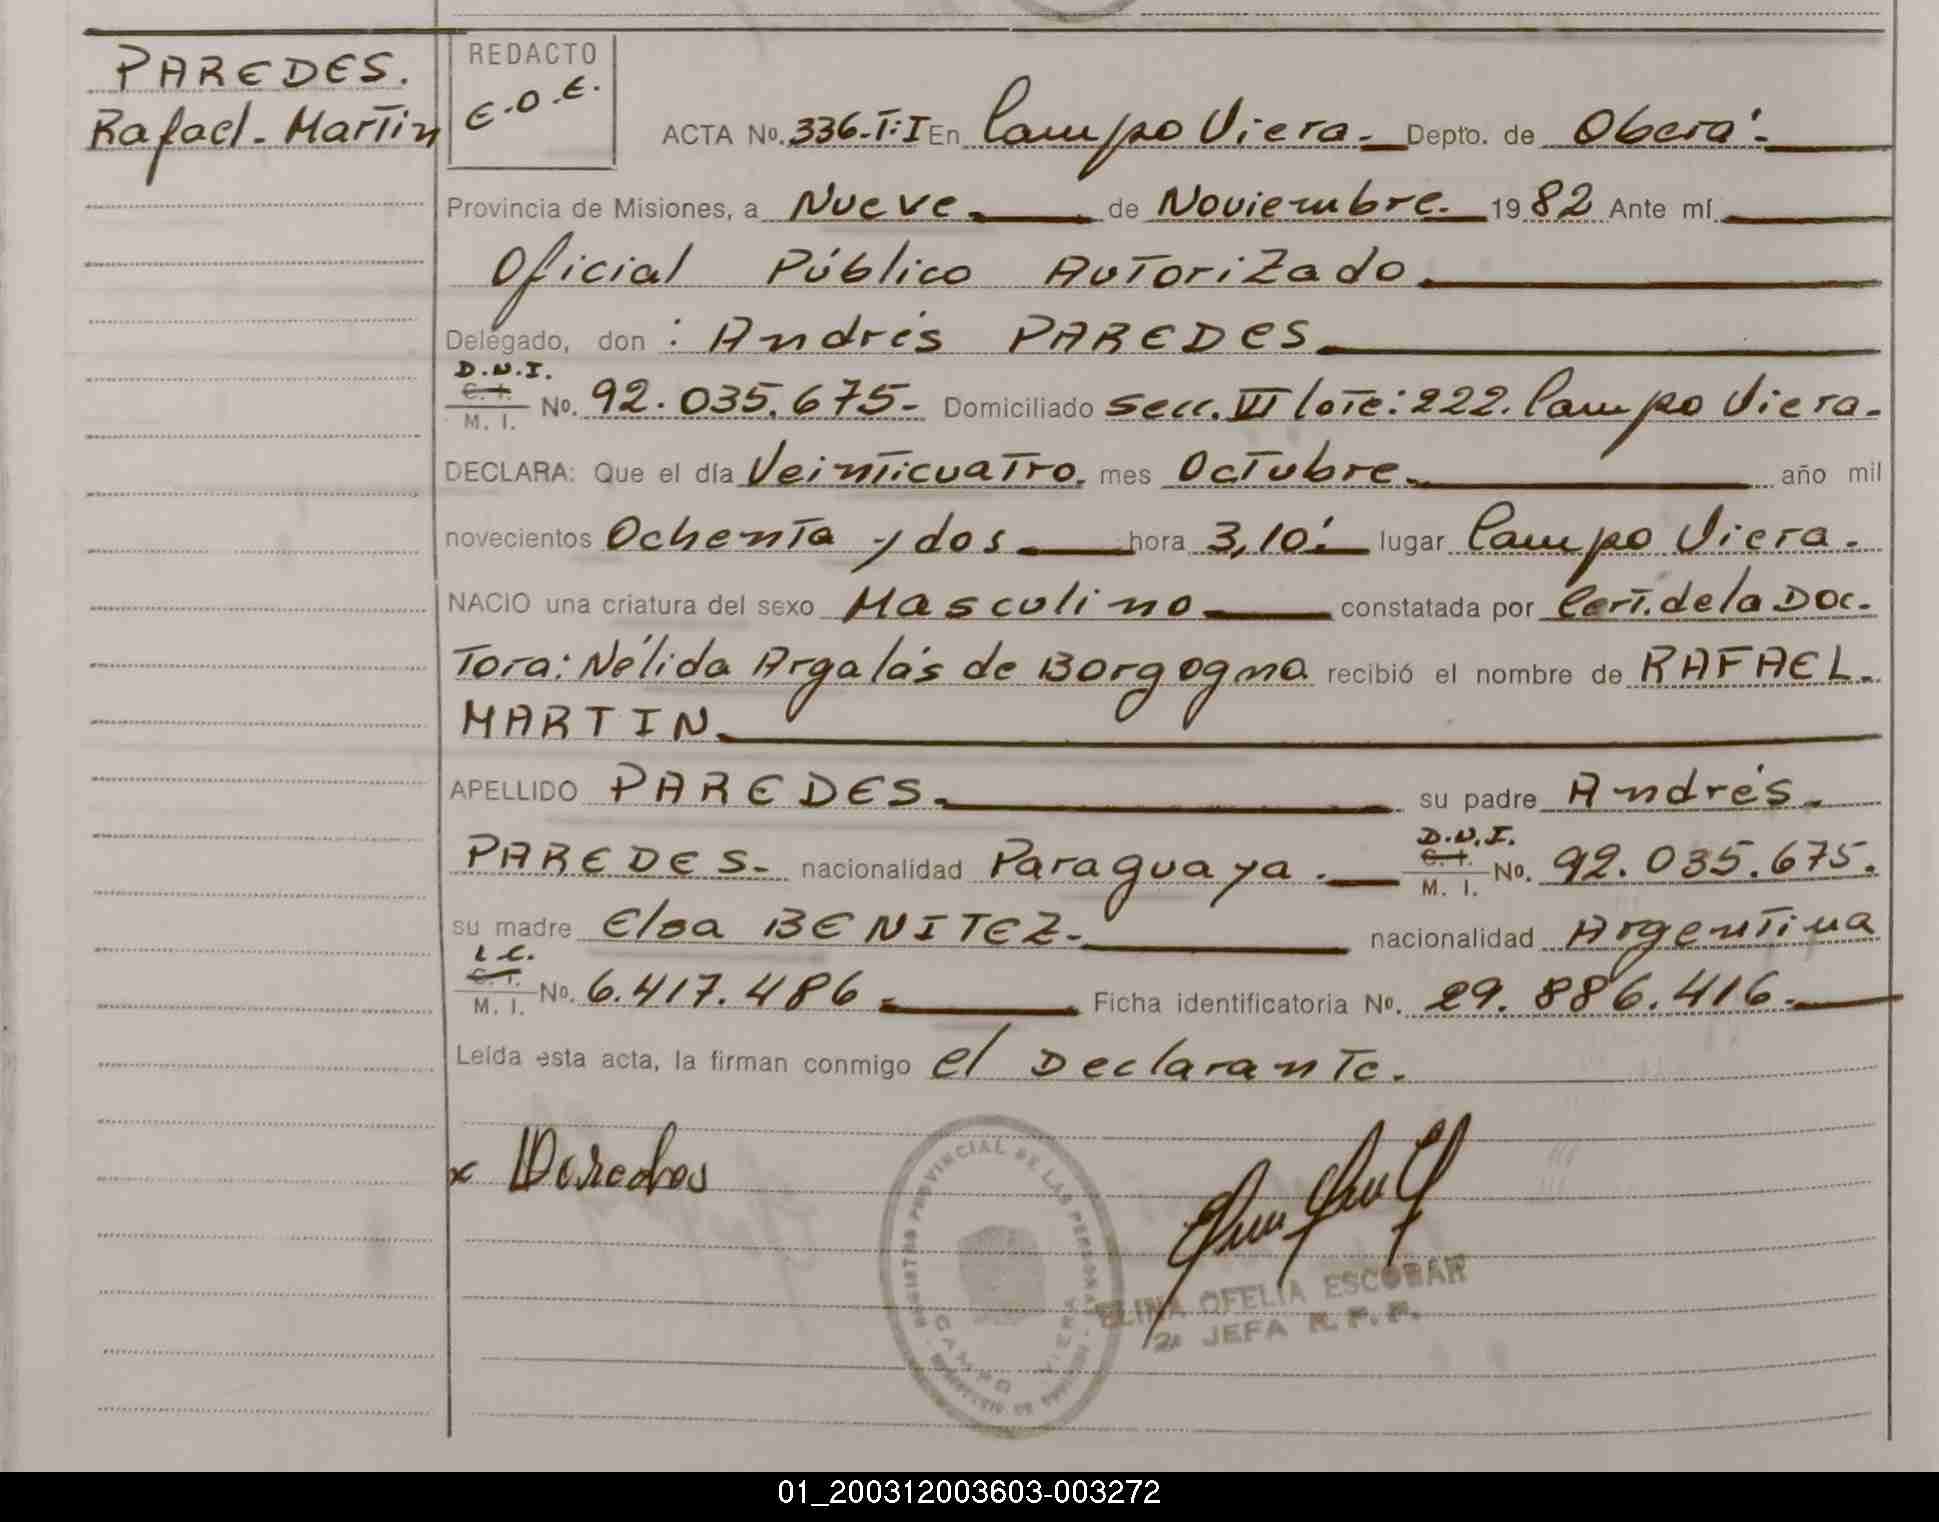 PAREDES.
Rafael. Martin
REDACTO
E.O.E.
ACTA No. 336-T:I En Campo Viera. Depto. de Oberá.
Provincia de Misiones, a Nueve. de Noviembre. 1982 Ante mí.
Oficial Público Autorizado.
Delegado, don : Andrés PAREDES.
D.N.I.
C. I.
M. I. No. 92.035.675- Domiciliado secc. III lote: 222. Campo Viera.
DECLARA: Que el día Veinticuatro. mes Octubre. año mil
novecientos Ochenta y dos. hora 3,10'. lugar Campo Viera.
NACIO una criatura del sexo Masculino. constatada por Cert. de la Doc-
tora: Nélida Argalás de Borgogna recibió el nombre de RAFAEL.
MARTIN.
APELLIDO PAREDES. su padre Andrés.
PAREDES. nacionalidad Paraguaya.
D.N.I.
C. I.
M. I. No. 92.035.675.
su madre Elsa BENITEZ. nacionalidad Argentina
L.C.
C. I.
M. I. No. 6.417.486. Ficha identificatoria No. 29.886.416.
Leída esta acta, la firman conmigo el Declarante.
x
REGISTRO PROVINCIAL DE LAS PERSONAS
CAMPO VIERA
ELINA OFELIA ESCOBAR
JEFA R. P. P.
01_200312003603-003272